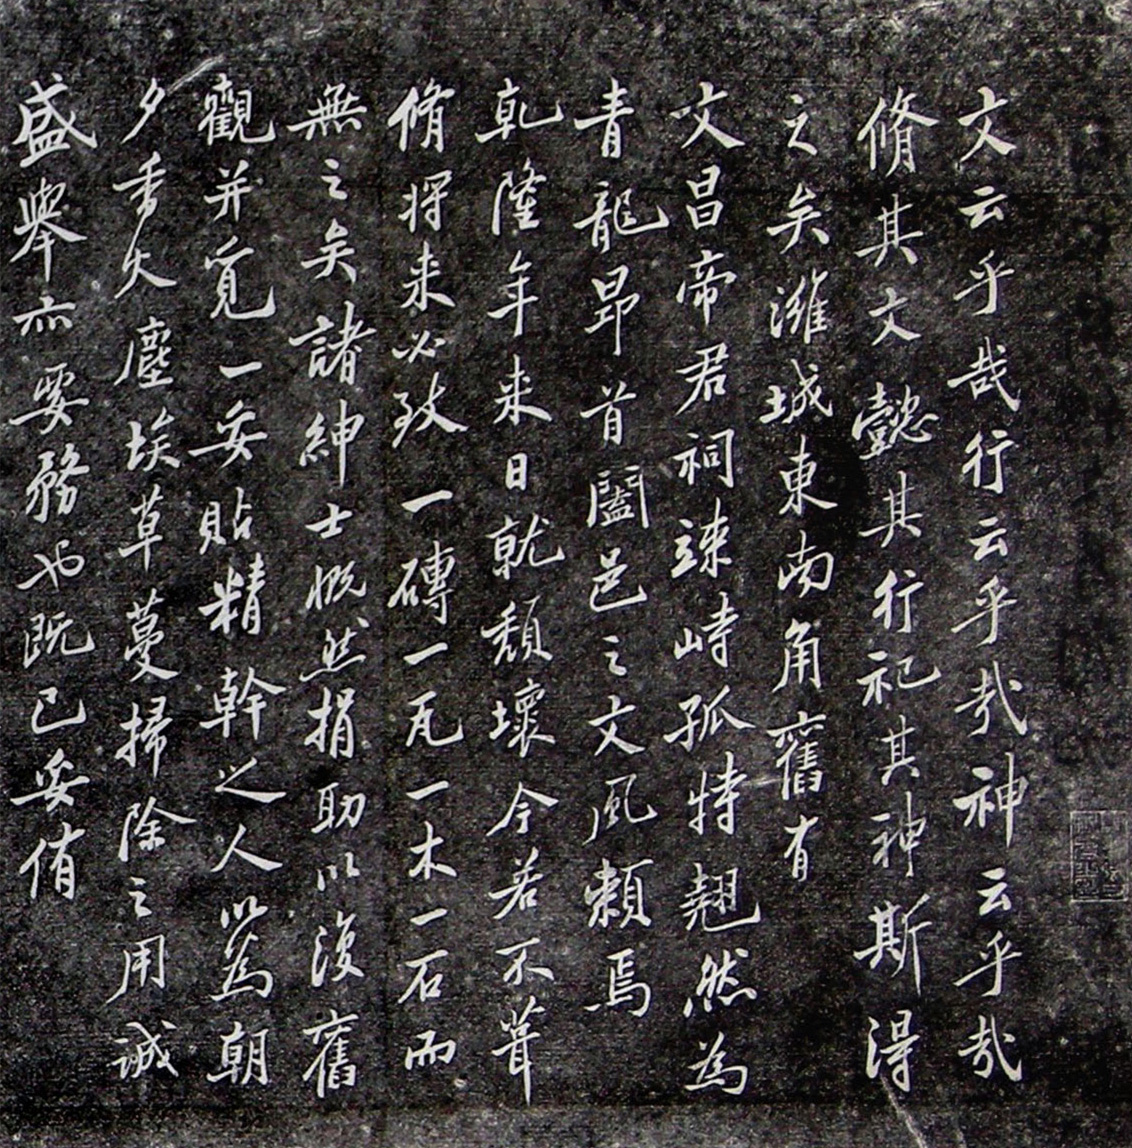 文云乎哉行云乎哉神云乎哉
脩其文懿其行祀其神斯得
之矣濰城東南角舊有
文昌帝君祠竦峙孤特翹然為
青龍昂首闔邑之文風賴焉
乾隆年来日就頹壞今若不葺
脩将来必致一磚一瓦一木一石而
無之矣諸紳士慨然捐助以復舊
觀并覓一妥貼精幹之人以為朝
夕香火塵埃草蔓掃除之用誠
盛舉亦要務也既已妥侑